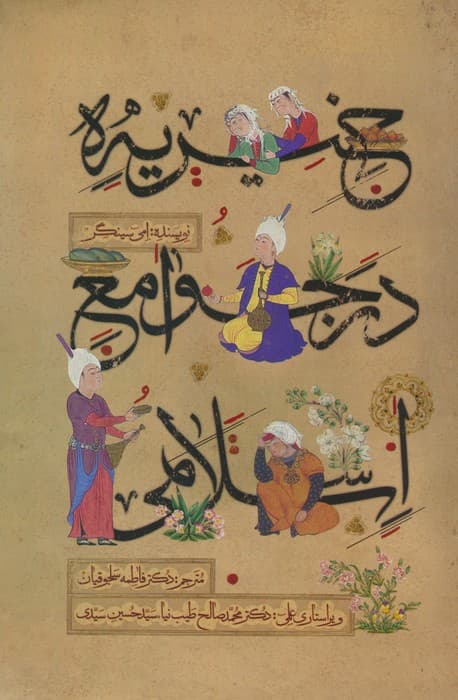 خیریه
نویسنده: امی سینگر
در جوامع
اسلامی
مترجم: دکتر فاطمه سلجوقیان
ویراستاری علمی: دکتر محمد صالح طیب نیا سید حسین سیدی